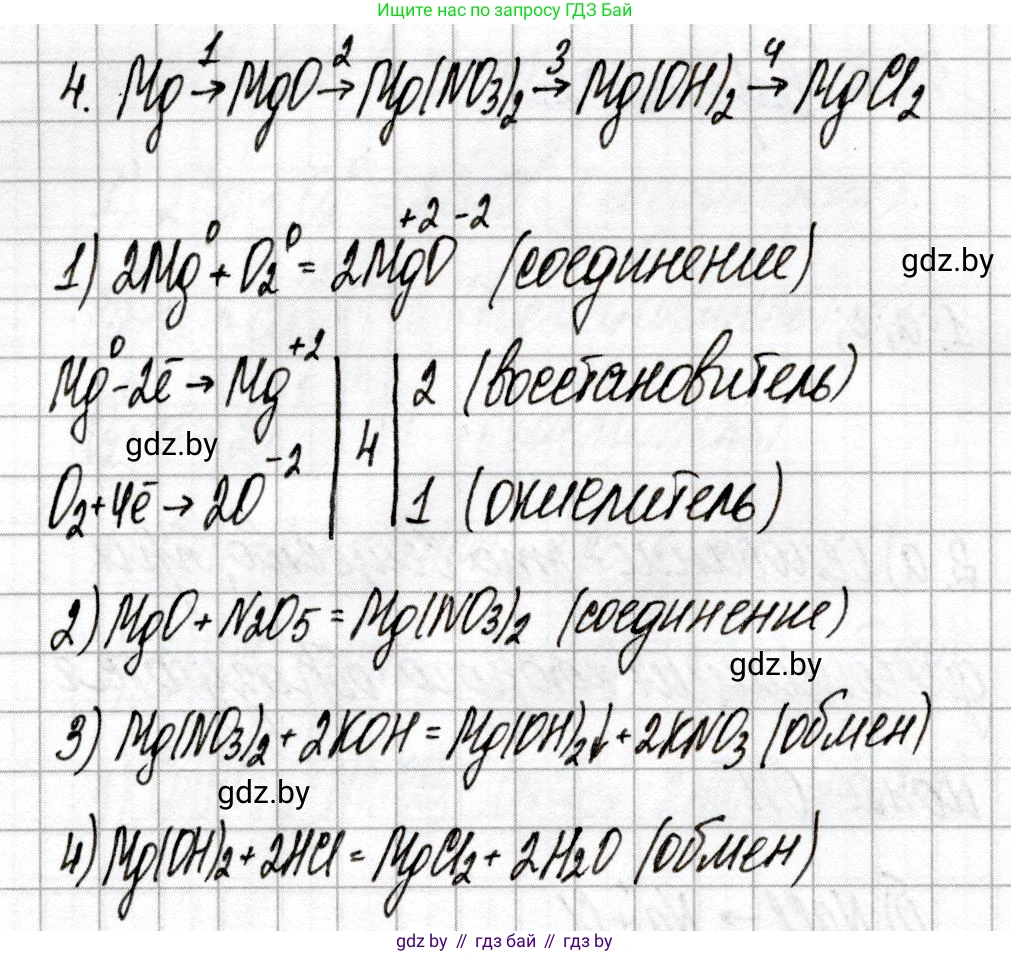 Ищите нас по запросу ГДЗ Бай
4. Mg →¹ MgO →² Mg(NO₃)₂ →³ Mg(OH)₂ →⁴ MgCl₂
+2 -2
1) 2Mg⁰ + O₂⁰ = 2MgO (соединение)
gdz.by
Mg⁰ - 2ē → Mg⁺² | | 2 (восстановитель)
gdz.by
4
O₂ + 4ē → 2O⁻² | | 1 (окислитель)
2) MgO + N2O5 = Mg(NO₃)₂ (соединение)
gdz.by
3) Mg(NO₃)₂ + 2KOH = Mg(OH)₂↓ + 2KNO₃ (обмен)
gdz.by
4) Mg(OH)₂ + 2HCl = MgCl₂ + 2H₂O (обмен)
gdz by // гдз бай // гдз by